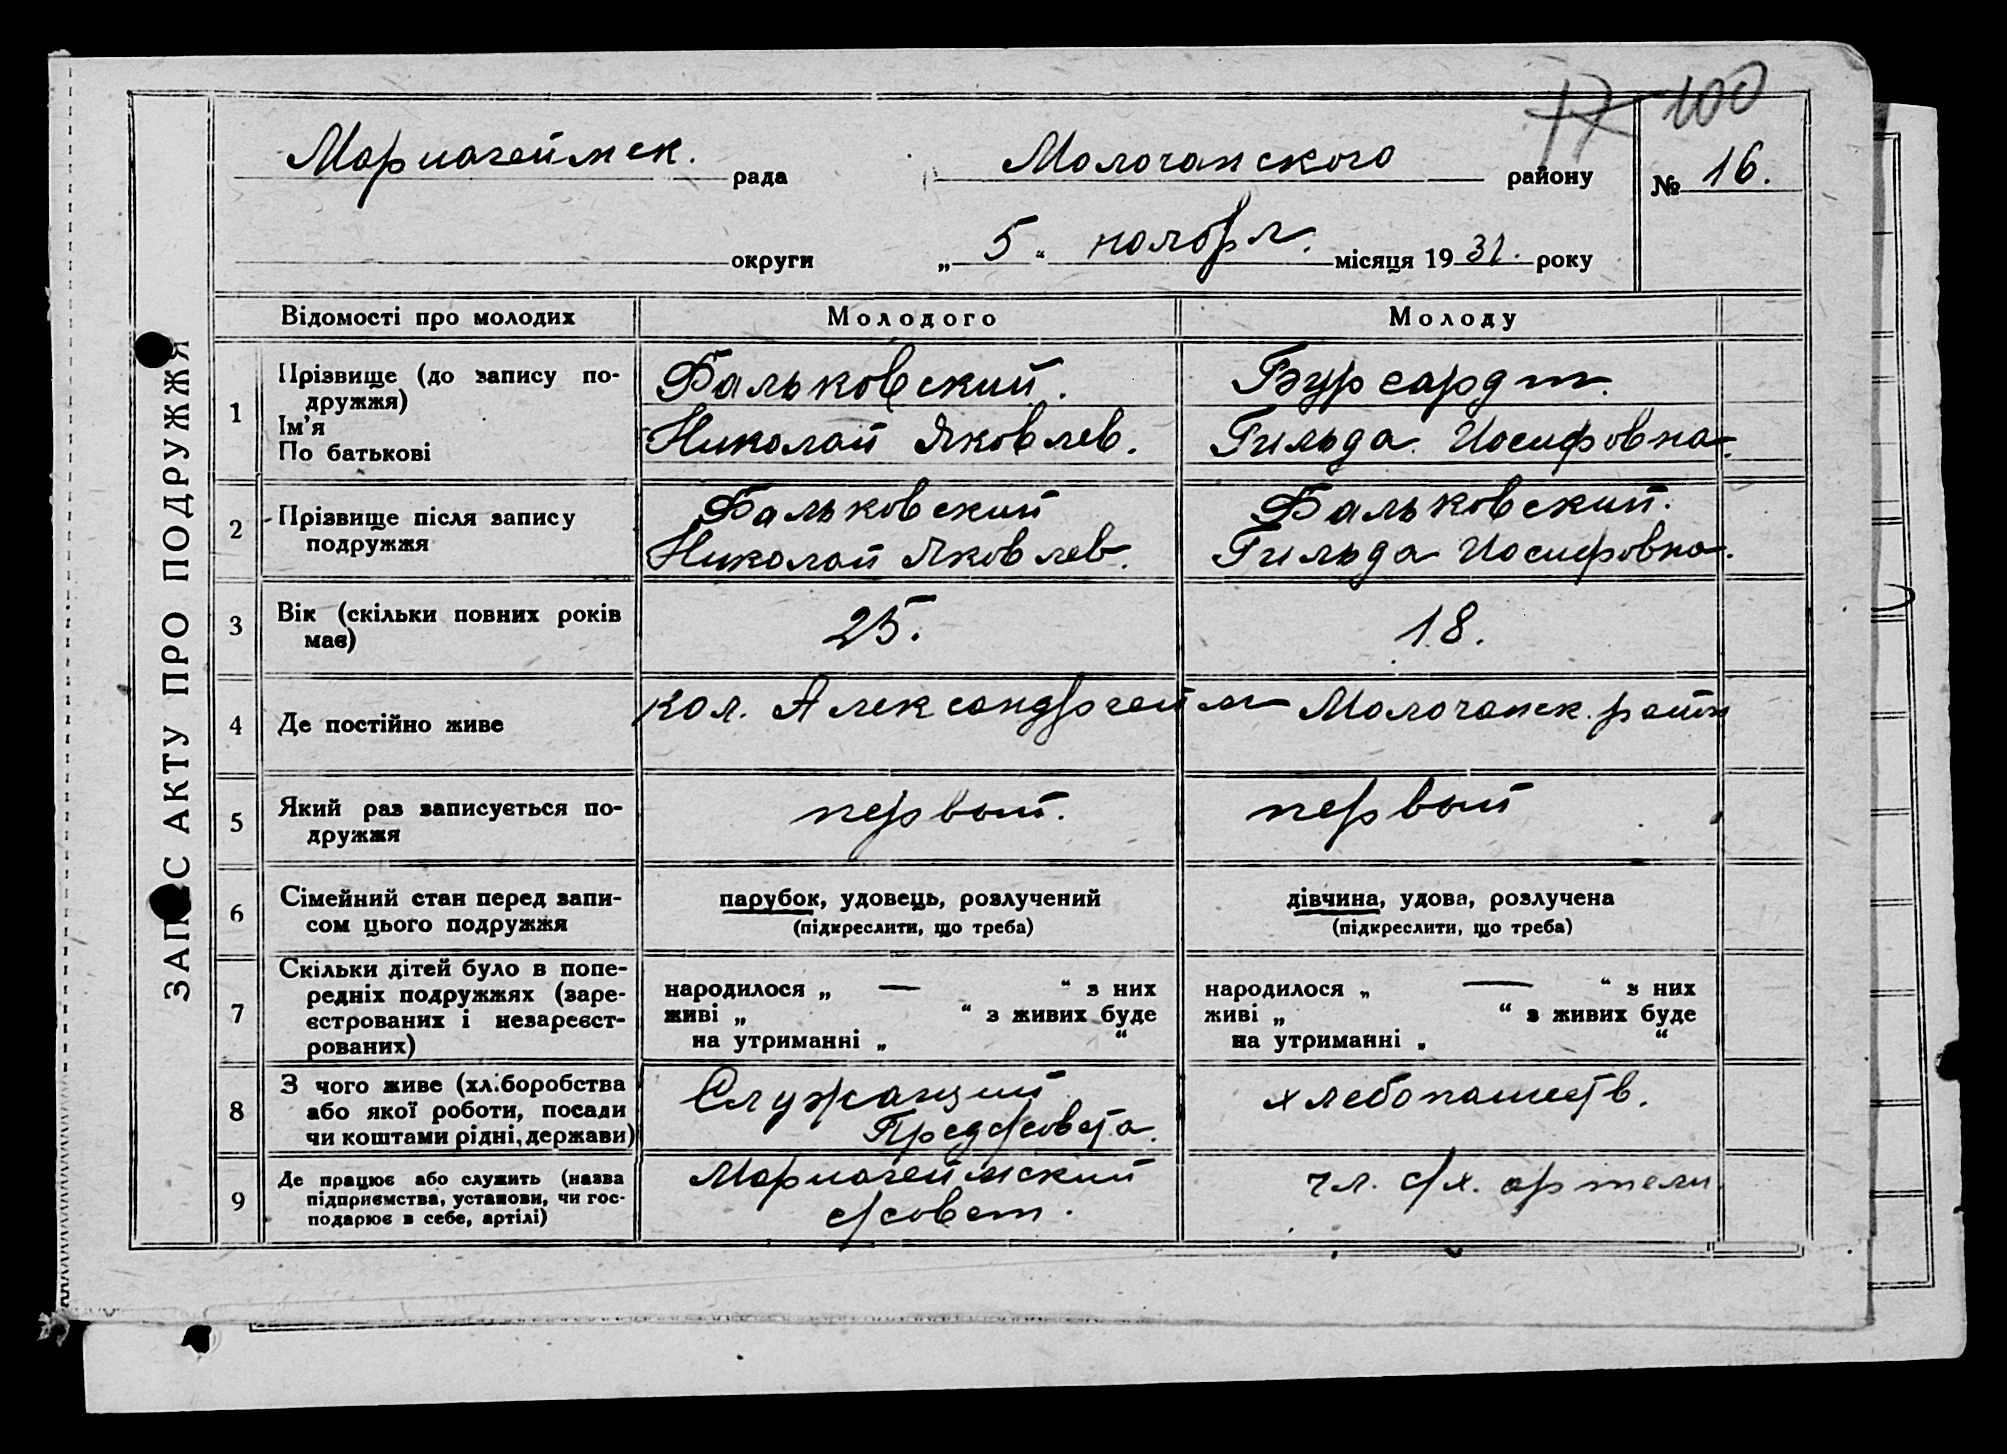 100
Мариагеймск. рада Молочанского району № 16.
округи „ 5 “ ноября. місяця 1931. року
ЗАПИС АКТУ ПРО ПОДРУЖЖЯ
Відомості про молодих Молодого Молоду
1 Прізвище (до запису по-
дружжя)
Ім'я
По батькові
Фальковский.
Николай Яковлев.
Бургардт.
Гильда Иосифовна.
2 Прізвище після запису
подружжя
Фальковский
Николай Яковлев.
Фальковский.
Гильда Иосифовна.
3 Вік (скільки повних років
має)
25.
18.
4 Де постійно живе
кол. Александргейм Молочанск. район
5 Який раз записується по-
дружжя
первый.
первый
6 Сімейний стан перед запи-
сом цього подружжя
парубок, удовець, розлучений
(підкреслити, що треба)
дівчина, удова, розлучена
(підкреслити, що треба)
7 Скільки дітей було в попе-
редніх подружжях (заре-
єстрованих і незареєст-
рованих)
народилося „ — “ з них
живі „ “ з живих буде
на утриманні „ “
народилося „ — “ з них
живі „ “ з живих буде
на утриманні „ “
8 З чого живе (хліборобства
або якої роботи, посади
чи коштами рідні, держави)
Служащий
Пред с/совета.
хлебопашеств.
9 Де працює або служить (назва
підприємства, установи, чи гос-
подарює в себе, артілі)
Мариагеймский
с/совет.
чл. с/х. артели